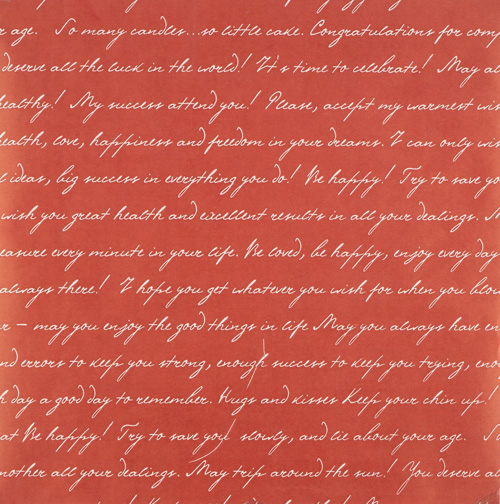 r age. So many candles...so little cake. Congratulations for com
deserve all the luck in the world! It's time to celebrate! May al
ealthy! My success attend you! Please, accept my warmest wis
ealth, love, happiness and freedom in your dreams. I can only wis
l ideas, big success in everything you do! Be happy! Try to save yo
wish you great health and excellent results in all your dealings.
easure every minute in your life. Be loved, be happy, enjoy every day
always there! I hope you get whatever you wish for when you blow
r – may you enjoy the good things in life May you always have en
nd errors to keep you strong, enough success to keep you trying, eno
h day a good day to remember. Hugs and kisses Keep your chin up!
at Be happy! Try to save you slowly, and lie about your age. S
nother all your dealings. May trip around the sun! You deserve al